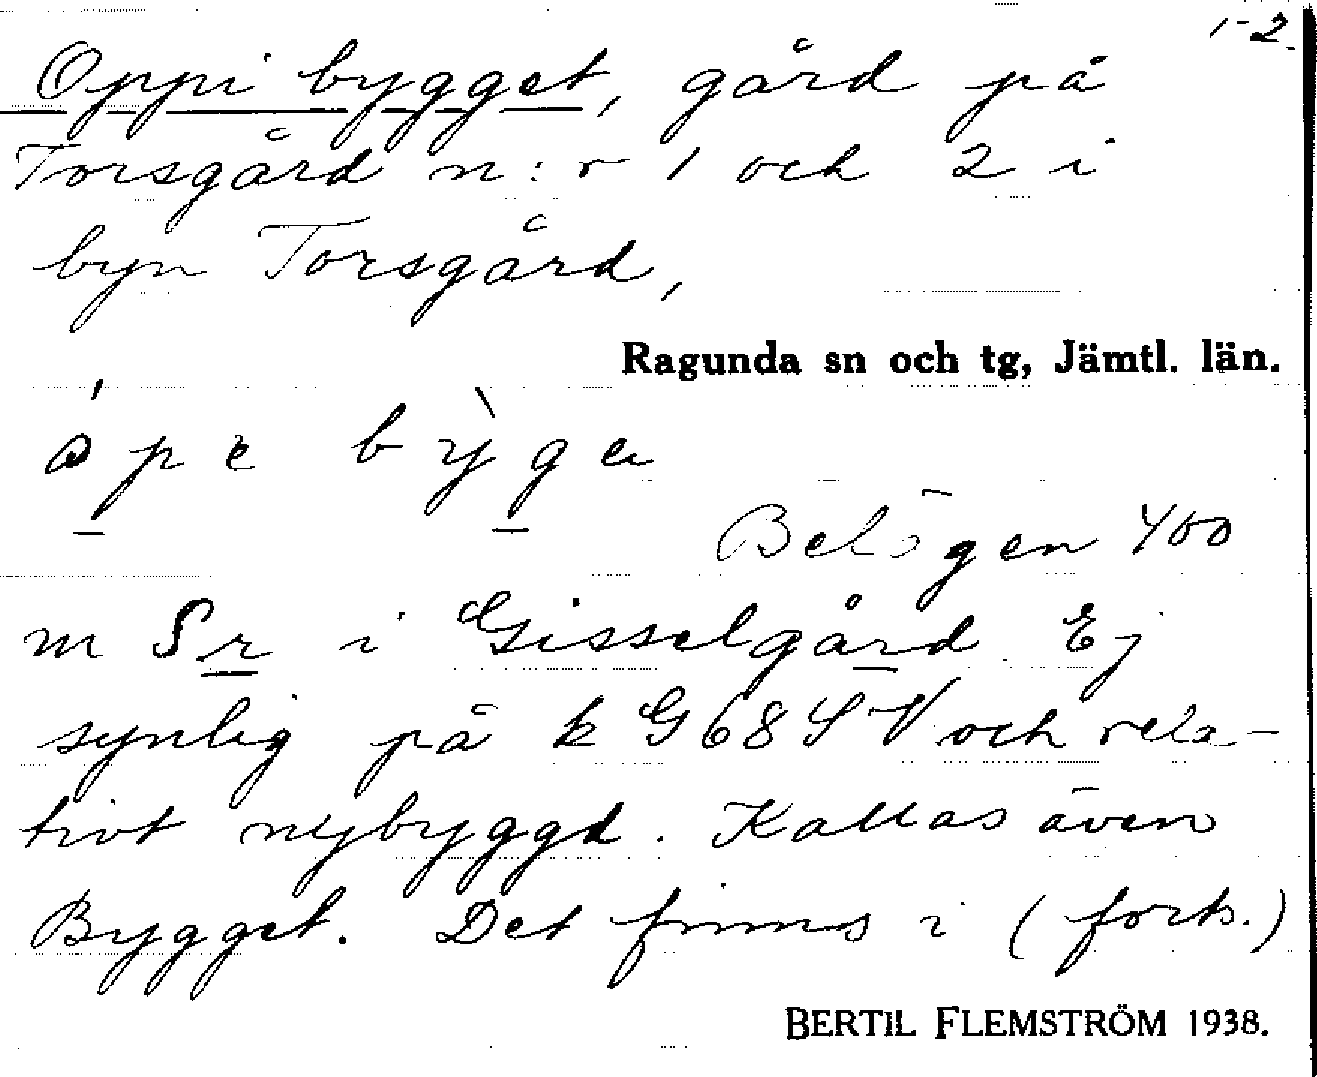 1-2.
Oppi bygget, gård på
Torsgård n:r 1 och 2 i
byn Torsgård,
Ragunda sn och tg, Jämtl. län.
Belägen 400
m Sr i Gisselgård Ej
synlig på k G 68 SV och rela-
tivt nybyggd. Kallas även
Bygget. Det finns i (forts.)
BERTIL FLEMSTRÖM 1938.